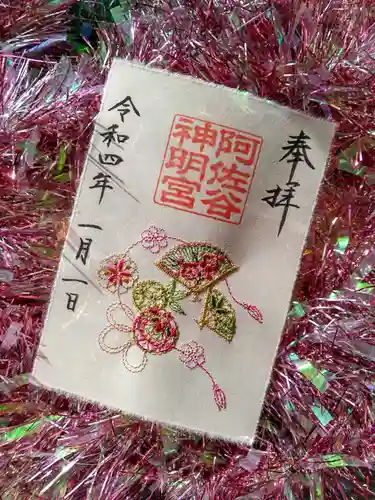 奉拝
阿佐谷
神明宮
令和四年 一月一日